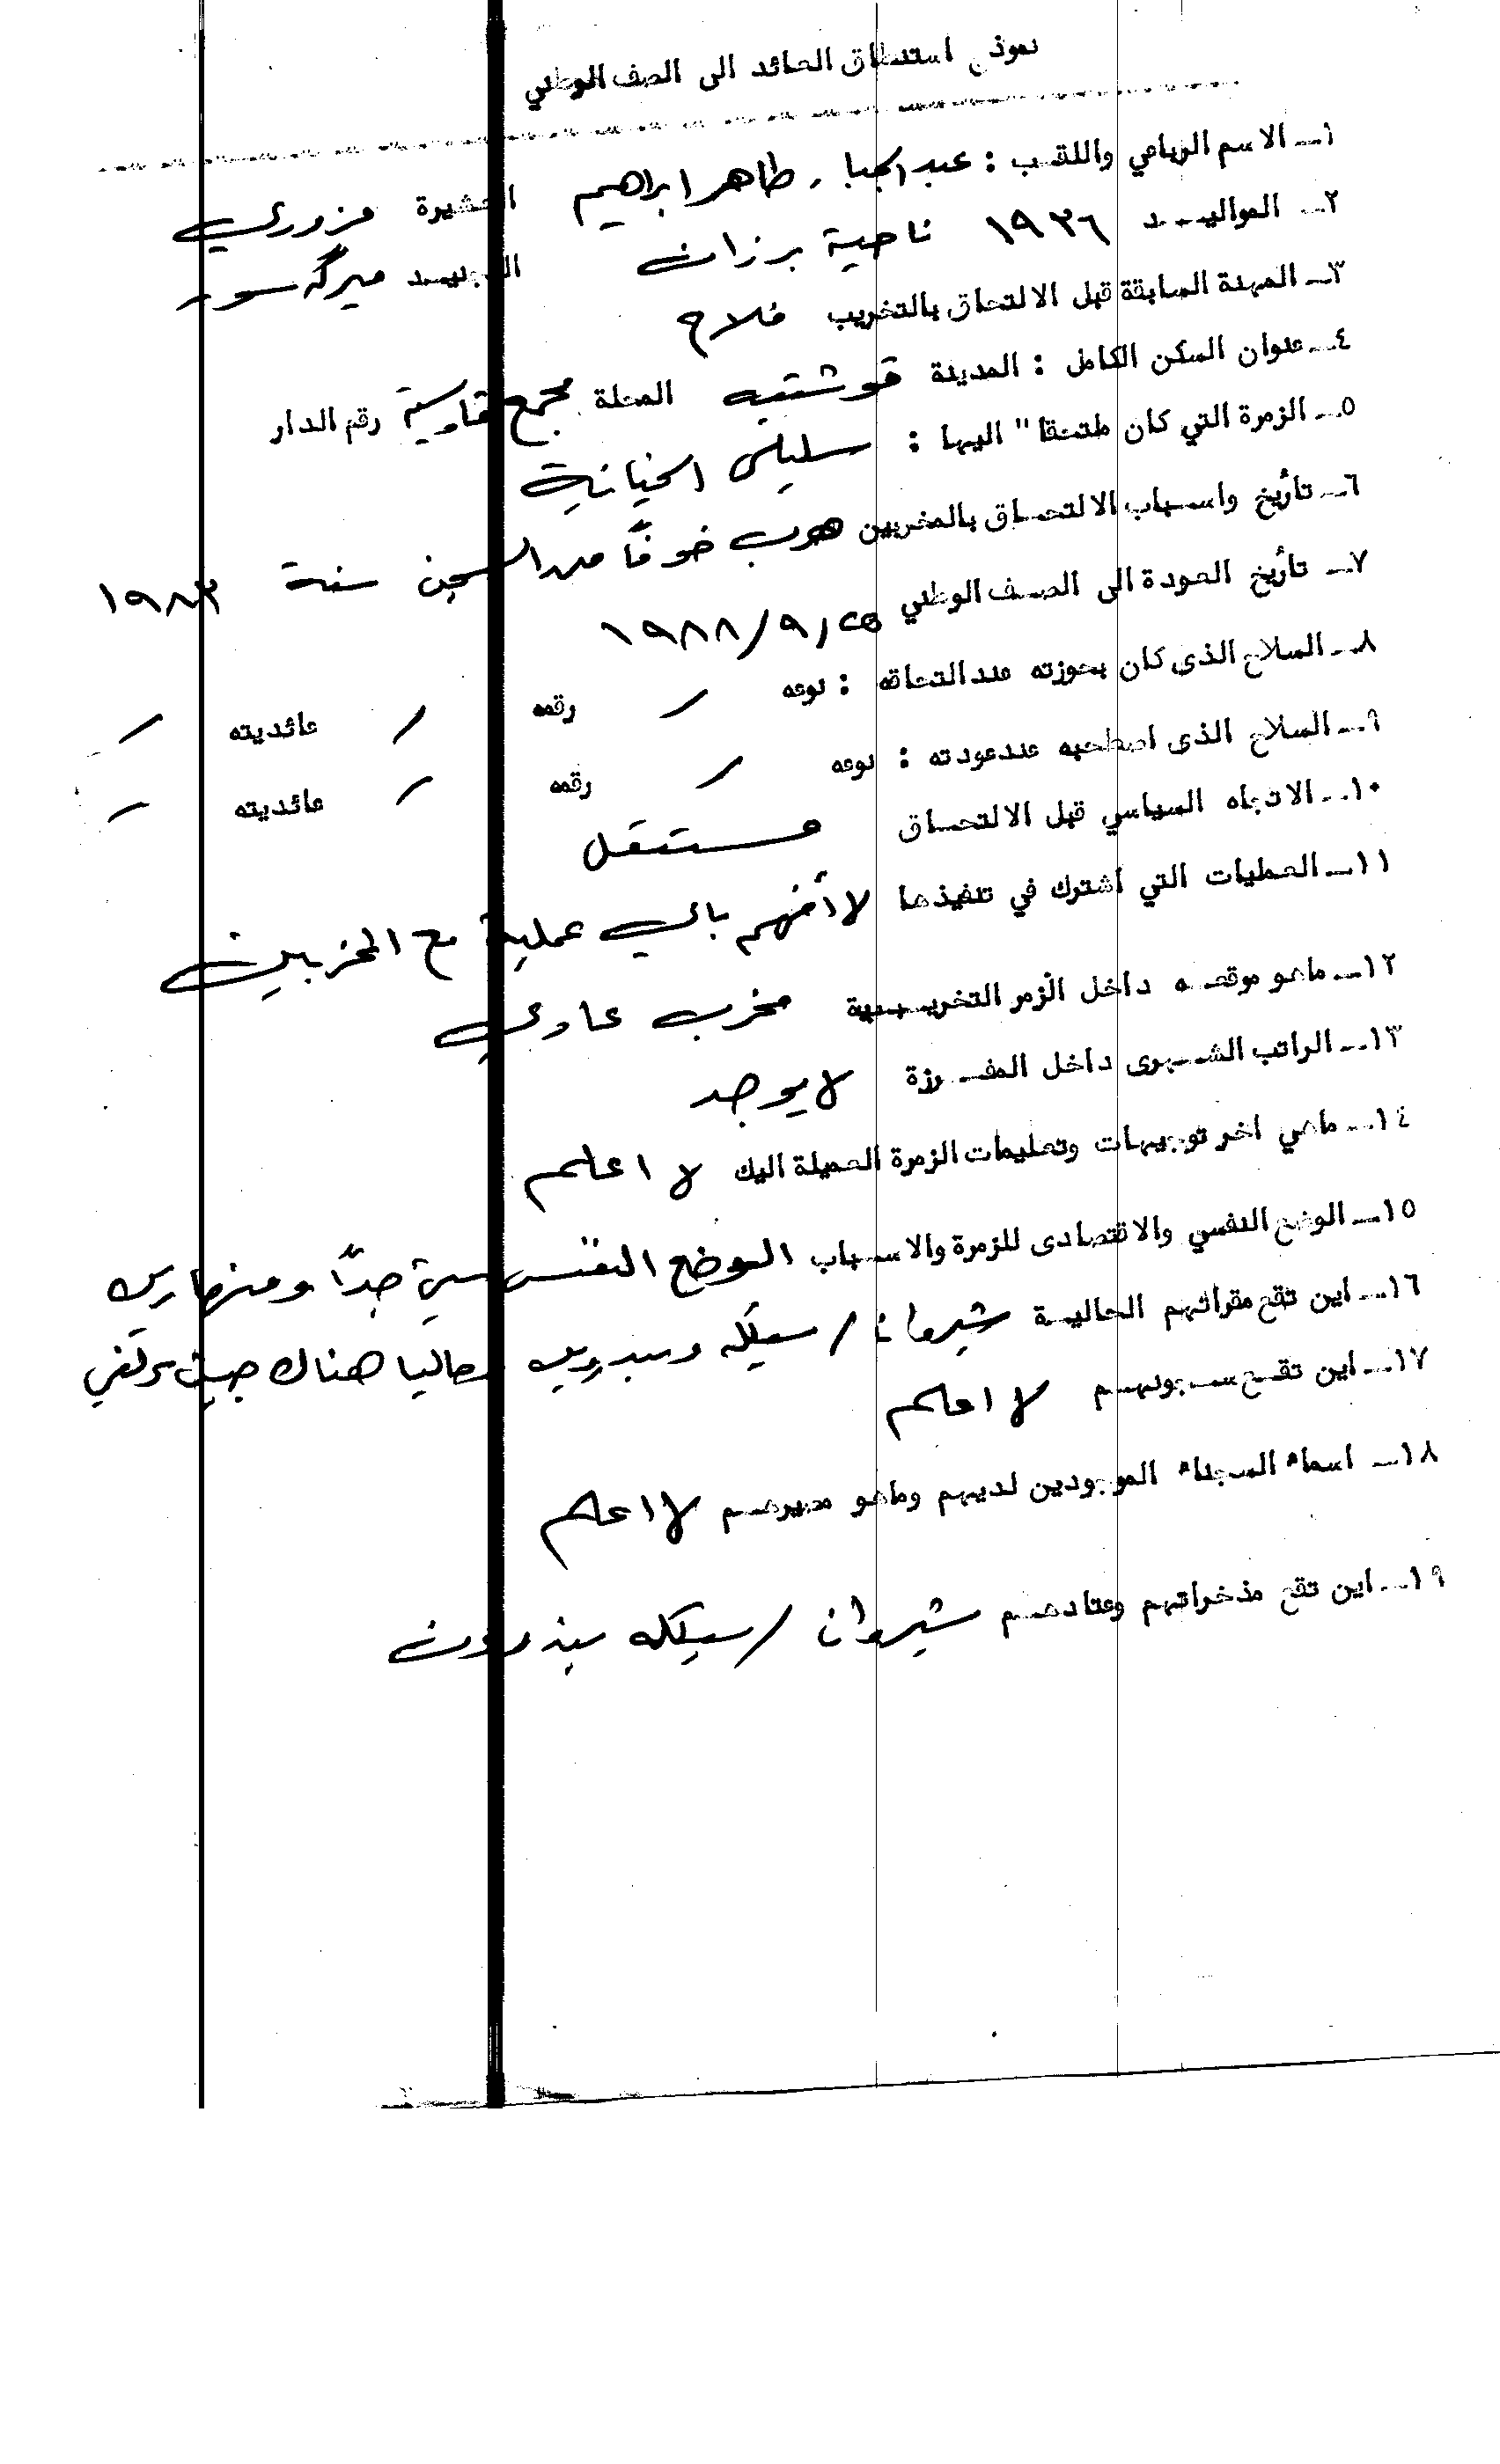 نموذج استنطاق العائد الى الصف الوطني
١ــ الاسم الرباعي واللقب : عبد الجبار طاهر ابراهيم العشيرة مزوري
٢ــ المواليد ١٩٣٦ ناحية برزان التجنيد ميرگه سور
٣ــ المهنة السابقة قبل الالتحاق بالتخريب فلاح
٤ــ عنوان السكن الكامل : المدينة قوشتبه المحلة مجمع قادسية رقم الدار
٥ــ الزمرة التي كان ملتحقا" اليها : سليلي الخيانة
٦ــ تأريخ واسباب الالتحاق بالمخربين هرب خوفاً من السجن سنة ١٩٨٣
٧ــ تأريخ العودة الى الصف الوطني ١٩٨٨/٩/
٨ــ السلاح الذى كان بحوزته عند التحاقه : نوعه / رقمه / عائديته /
٩ــ السلاح الذى اصطحبه عند عودته : نوعه / رقمه / عائديته /
١٠ــ الاتجاه السياسي قبل الالتحاق مستقل
١١ــ العمليات التي اشترك في تنفيذها لا باي عملية مع المخربين
١٢ــ ماهو موقعه داخل الزمر التخريبية مخرب عادي
١٣ــ الراتب الشهرى داخل المفرزة لا يوجد
١٤ــ ماهي اخر توجيهات وتعليمات الزمرة العميلة اليك لا اعلم
١٥ــ الوضع النفسي والاقتصادى للزمرة والاسباب الوضع النفسي سيئ جداً ومنهارين
١٦ــ اين تقع مقراتهم الحالية شيروان / سيلكه حاليا هناك جيش تركي
١٧ــ اين تقع سجونهم لا اعلم
١٨ــ اسماء السجناء الموجودين لديهم وماهو مصيرهم لا اعلم
١٩ــ اين تقع مذخراتهم وعتادهم شيروان / سيلكه